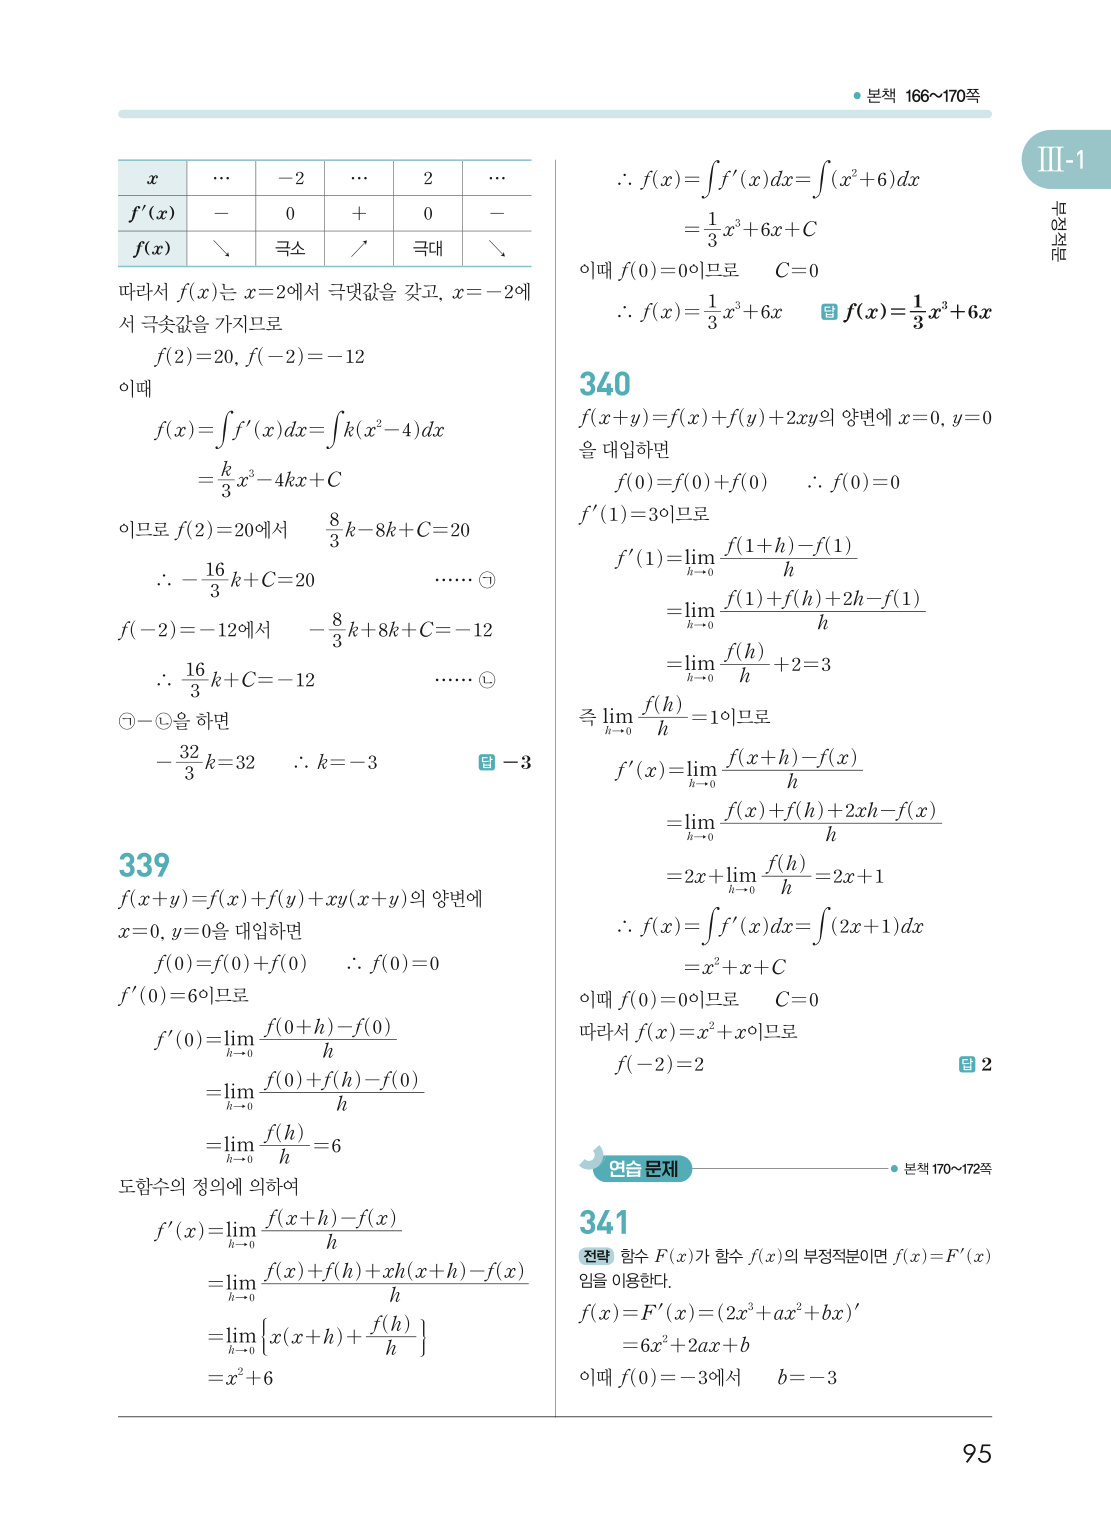 본책 166~170쪽
Ⅲ-1
부정적분
x … -2 … 2 …
f′(x) - 0 + 0 -
f(x) ↘ 극소 ↗ 극대 ↘
따라서 f(x)는 x=2에서 극댓값을 갖고, x=-2에
서 극솟값을 가지므로
f(2)=20, f(-2)=-12
이때
f(x)=∫f′(x)dx=∫k(x²-4)dx
=k/3 x³-4kx+C
이므로 f(2)=20에서 8/3 k-8k+C=20
∴ -16/3 k+C=20 …… ㉠
f(-2)=-12에서 -8/3 k+8k+C=-12
∴ 16/3 k+C=-12 …… ㉡
㉠-㉡을 하면
-32/3 k=32 ∴ k=-3 답 -3
339
f(x+y)=f(x)+f(y)+xy(x+y)의 양변에
x=0, y=0을 대입하면
f(0)=f(0)+f(0) ∴ f(0)=0
f′(0)=6이므로
f′(0)=lim h→0 f(0+h)-f(0)/h
=lim h→0 f(0)+f(h)-f(0)/h
=lim h→0 f(h)/h=6
도함수의 정의에 의하여
f′(x)=lim h→0 f(x+h)-f(x)/h
=lim h→0 f(x)+f(h)+xh(x+h)-f(x)/h
=lim h→0 {x(x+h)+f(h)/h}
=x²+6
∴ f(x)=∫f′(x)dx=∫(x²+6)dx
=1/3 x³+6x+C
이때 f(0)=0이므로 C=0
∴ f(x)=1/3 x³+6x 답 f(x)=1/3 x³+6x
340
f(x+y)=f(x)+f(y)+2xy의 양변에 x=0, y=0
을 대입하면
f(0)=f(0)+f(0) ∴ f(0)=0
f′(1)=3이므로
f′(1)=lim h→0 f(1+h)-f(1)/h
=lim h→0 f(1)+f(h)+2h-f(1)/h
=lim h→0 f(h)/h+2=3
즉 lim h→0 f(h)/h=1이므로
f′(x)=lim h→0 f(x+h)-f(x)/h
=lim h→0 f(x)+f(h)+2xh-f(x)/h
=2x+lim h→0 f(h)/h=2x+1
∴ f(x)=∫f′(x)dx=∫(2x+1)dx
=x²+x+C
이때 f(0)=0이므로 C=0
따라서 f(x)=x²+x이므로
f(-2)=2 답 2
연습 문제 본책 170~172쪽
341
전략 함수 F(x)가 함수 f(x)의 부정적분이면 f(x)=F′(x)
임을 이용한다.
f(x)=F′(x)=(2x³+ax²+bx)′
=6x²+2ax+b
이때 f(0)=-3에서 b=-3
95